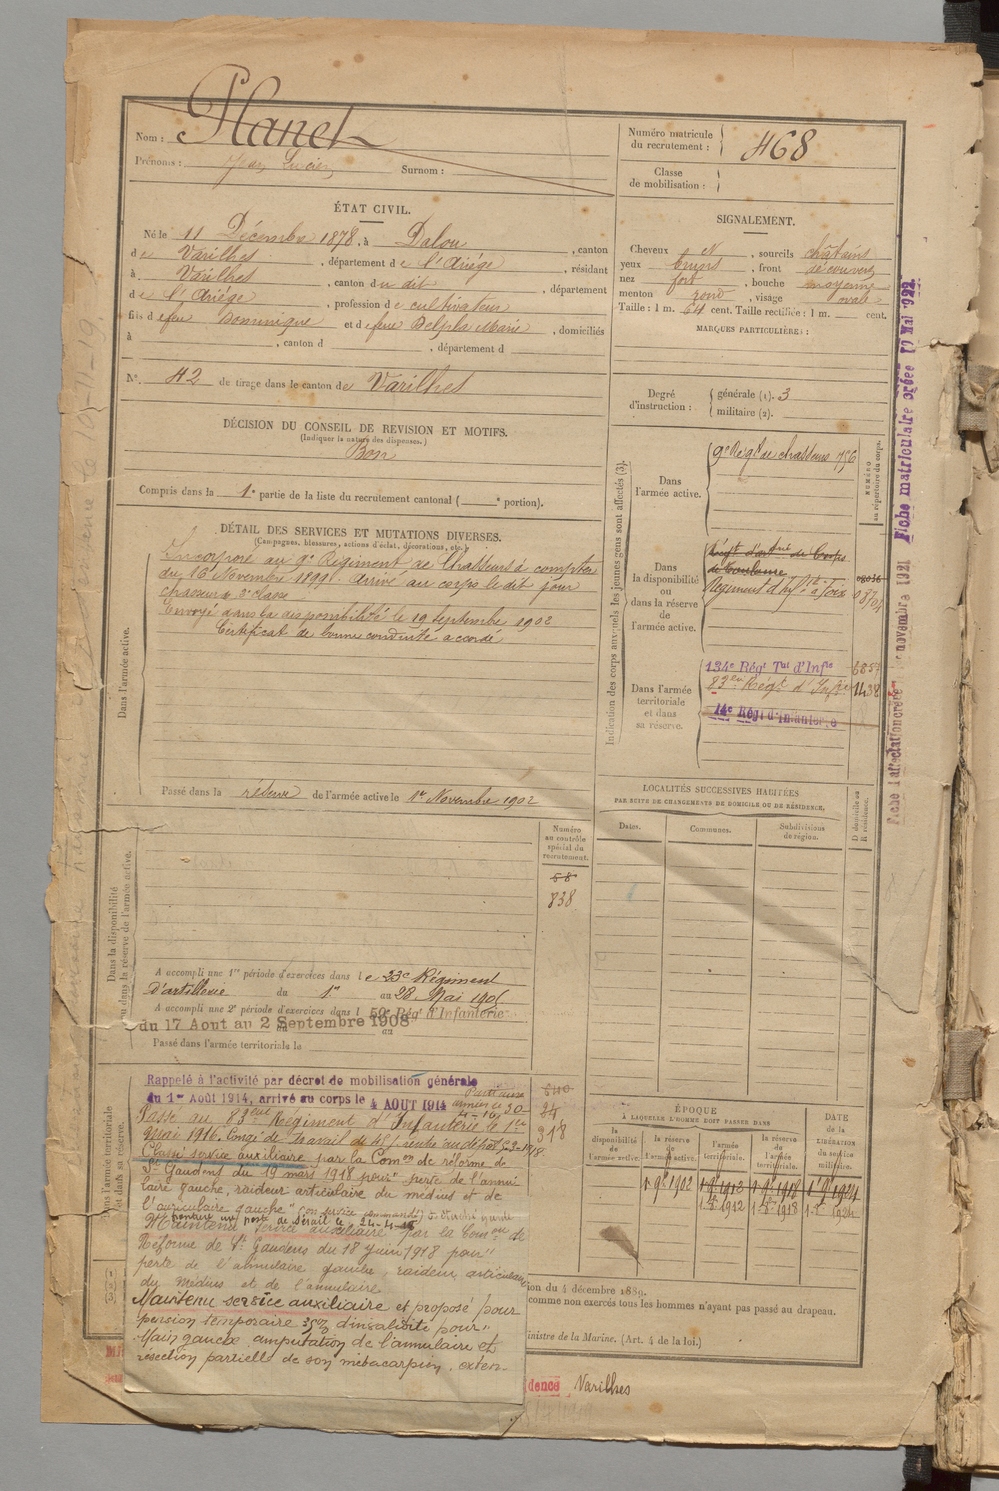 Nom : Planel
Prénoms : Jean Lucien Surnom :
Numéro matricule du recrutement : 468
Classe de mobilisation :
ÉTAT CIVIL.
Né le 11 Décembre 1878, à Dalou, canton
de Varilhes, département de l'Ariége, résidant
à Varilhes, canton du dit, département
de l'Ariége, profession de cultivateur
fils de feu Dominique et de feue Delpla Marie, domiciliés
à , canton d , département d
N° 42 de tirage dans le canton de Varilhes
SIGNALEMENT.
Cheveux et, sourcils châtains
yeux bruns, front découvert
nez fort, bouche moyenne
menton rond, visage ovale
Taille : 1 m. 64 cent. Taille rectifiée : 1 m. cent.
MARQUES PARTICULIÈRES :
Degré d'instruction : générale (1). 3
militaire (2).
DÉCISION DU CONSEIL DE REVISION ET MOTIFS.
(Indiquer la nature des dispenses.)
Bon
Compris dans la 1e partie de la liste du recrutement cantonal ( e portion).
DÉTAIL DES SERVICES ET MUTATIONS DIVERSES.
(Campagnes, blessures, actions d'éclat, décorations, etc.)
Dans l'armée active.
Incorporé au 9e Régiment de Chasseurs à compter
du 16 Novembre 1899. Arrivé au corps le dit jour
chasseur de 2e classe
Envoyé dans la disponibilité le 19 septembre 1902
Certificat de bonne conduite accordé
Passé dans la réserve de l'armée active le 1er Novembre 1902
Indication des corps auxquels les jeunes gens sont affectés (3).
NUMÉRO au répertoire du corps.
Dans l'armée active.
9e Régt de chasseurs 756
Dans la disponibilité ou dans la réserve de l'armée active.
Régt d'artrie de Corps
de Toulouse 08036
Régiment d'Infrie à Foix 03704
Dans l'armée territoriale et dans sa réserve.
134e Régt Tal d'Infie 6857
83eme Régt d'Infie 1438
14e Régt d'Infanterie
Fiche d'affectation créée 1er novembre 1921 Fiche matriculaire créée 10 Mai 1922
LOCALITÉS SUCCESSIVES HABITÉES
PAR SUITE DE CHANGEMENTS DE DOMICILE OU DE RÉSIDENCE.
D domicile ou R résidence.
Dates. Communes. Subdivisions de région.
Dans la disponibilité ou dans la réserve de l'armée active.
Numéro au contrôle spécial du recrutement.
58
838
A accompli une 1re période d'exercices dans le 23e Régiment
d'artillerie du 1er au 28 Mai 1905
A accompli une 2e période d'exercices dans le 59e Régt d'Infanterie
du 17 Aout au 2 Septembre 1908
Passé dans l'armée territoriale le
Dans l'armée territoriale et dans sa réserve.
Rappelé à l'activité par décret de mobilisation générale
du 1er Août 1914, arrivé au corps le 4 AOUT 1914
Passé au 83eme Régiment d'Infanterie le 1er
Mai 1916. Congé de travail de
Classé service auxiliaire par la Comon de réforme de
St Gaudens du 19 mars 1918 pour " perte de l'annu
laire gauche, raideur articulaire du médius et de
l'auriculaire gauche"
Maintenu service auxiliaire par la Comon de
Réforme de St Gaudens du 18 juin 1918 pour "
perte de l'annulaire gauche, raideur articulaire
du médius et de l'annulaire
Maintenu service auxiliaire et proposé pour
pension temporaire d'invalidité pour "
Main gauche amputation de l'annulaire et
résection partielle de son métacarpien, exten-
540
24
318
ÉPOQUE
À LAQUELLE L'HOMME DOIT PASSER DANS
DATE DE LA LIBÉRATION du service militaire.
la disponibilité de l'armée active. la réserve de l'armée active. l'armée territoriale. la réserve de l'armée territoriale.
1 9bre 1902 1 9bre 1912 1 9bre 1918 1 9bre 1924
1 8bre 1912 1 8bre 1918 1 8bre 1924
ion du 4 décembre 1889.
comme non exercés tous les hommes n'ayant pas passé au drapeau.
inistre de la Marine. (Art. 4 de la loi.)
dence Varilhes